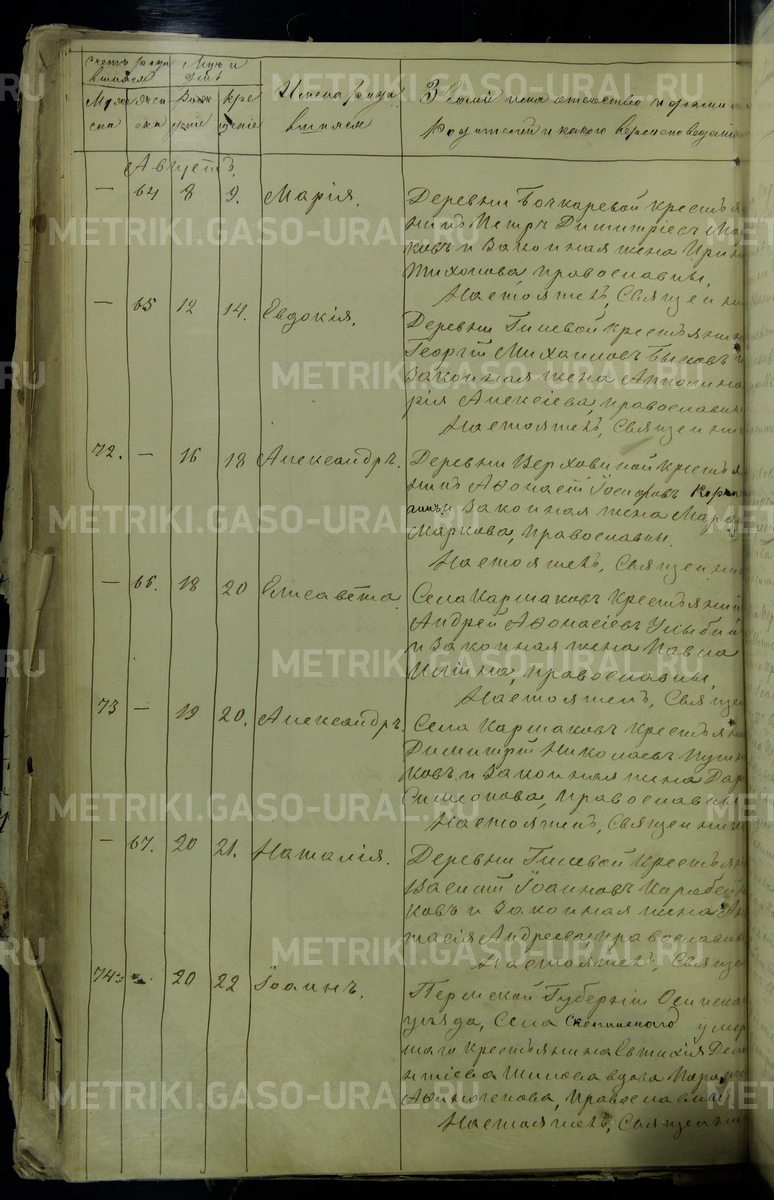 Счетъ роди Мѣс и
вшихся день Имена роди Званіе имя отчество и фамилія
Муже Женс Рож Кре вшихся родителей и какого вероисповеданія
ска ска деніе щеніе
Августъ.
— 64 8 9. Марія. Деревни Бочкаревой крестья
нинъ Петръ Димитріевъ
ковъ и Законная жена Ири
Тихонова, православны,
Настоятель, Священни
— 65 12 14. Евдокія. Деревни Гилевой крестьянин
Георгій Михаиловъ Быковъ и
Законная жена Аполина
рія Алексіева, православны
Настоятель, Священни
72. — 16 18 Александръ. Деревни Верховиной Крестья
нинъ Аѳонасій Іосифовъ
Законная жена Мар
Маркова, Православны.
Настоятель, Священни
— 66. 18 20 Елисавета. Села Каршаковъ Крестьянин
Андрей Аѳонасіевъ Улыбин
и Законная жена Павла
Ильина, православны,
Настоятель, Свящ
73 — 19 20. Александръ. Села Каршаковъ Крестьян
Димитрій Николаевъ
ковъ и Законная жена Дар
Симеонова, Православны
Настоятель, Священни
— 67. 20 21. Наталія. Деревни Гилевой Крестьян
Василій Іоанновъ Карабей
ковъ и Законная жена
тасія Андреева православны
Настоятель, Священ
74. — 20 22 Іоаннъ. Пермской Губерніи Осинска
уѣзда, Села умер
шаго крестьянина Евтихія
Шилова вдова
Аѳиногенова, Православны
Настоятель, Священни
METRIKI.GASO-URAL.RU